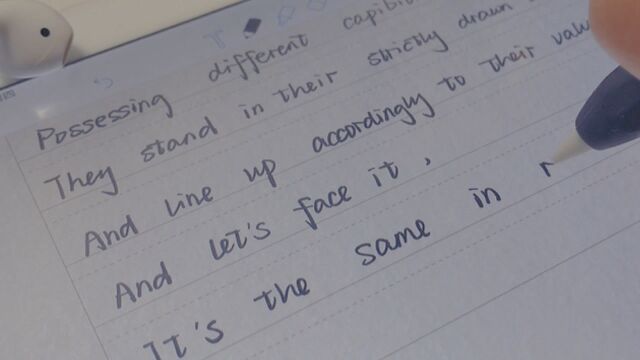 Possessing different
They stand in their strictly drawn
And line up accordingly to their
And let's face it,
It's the same in